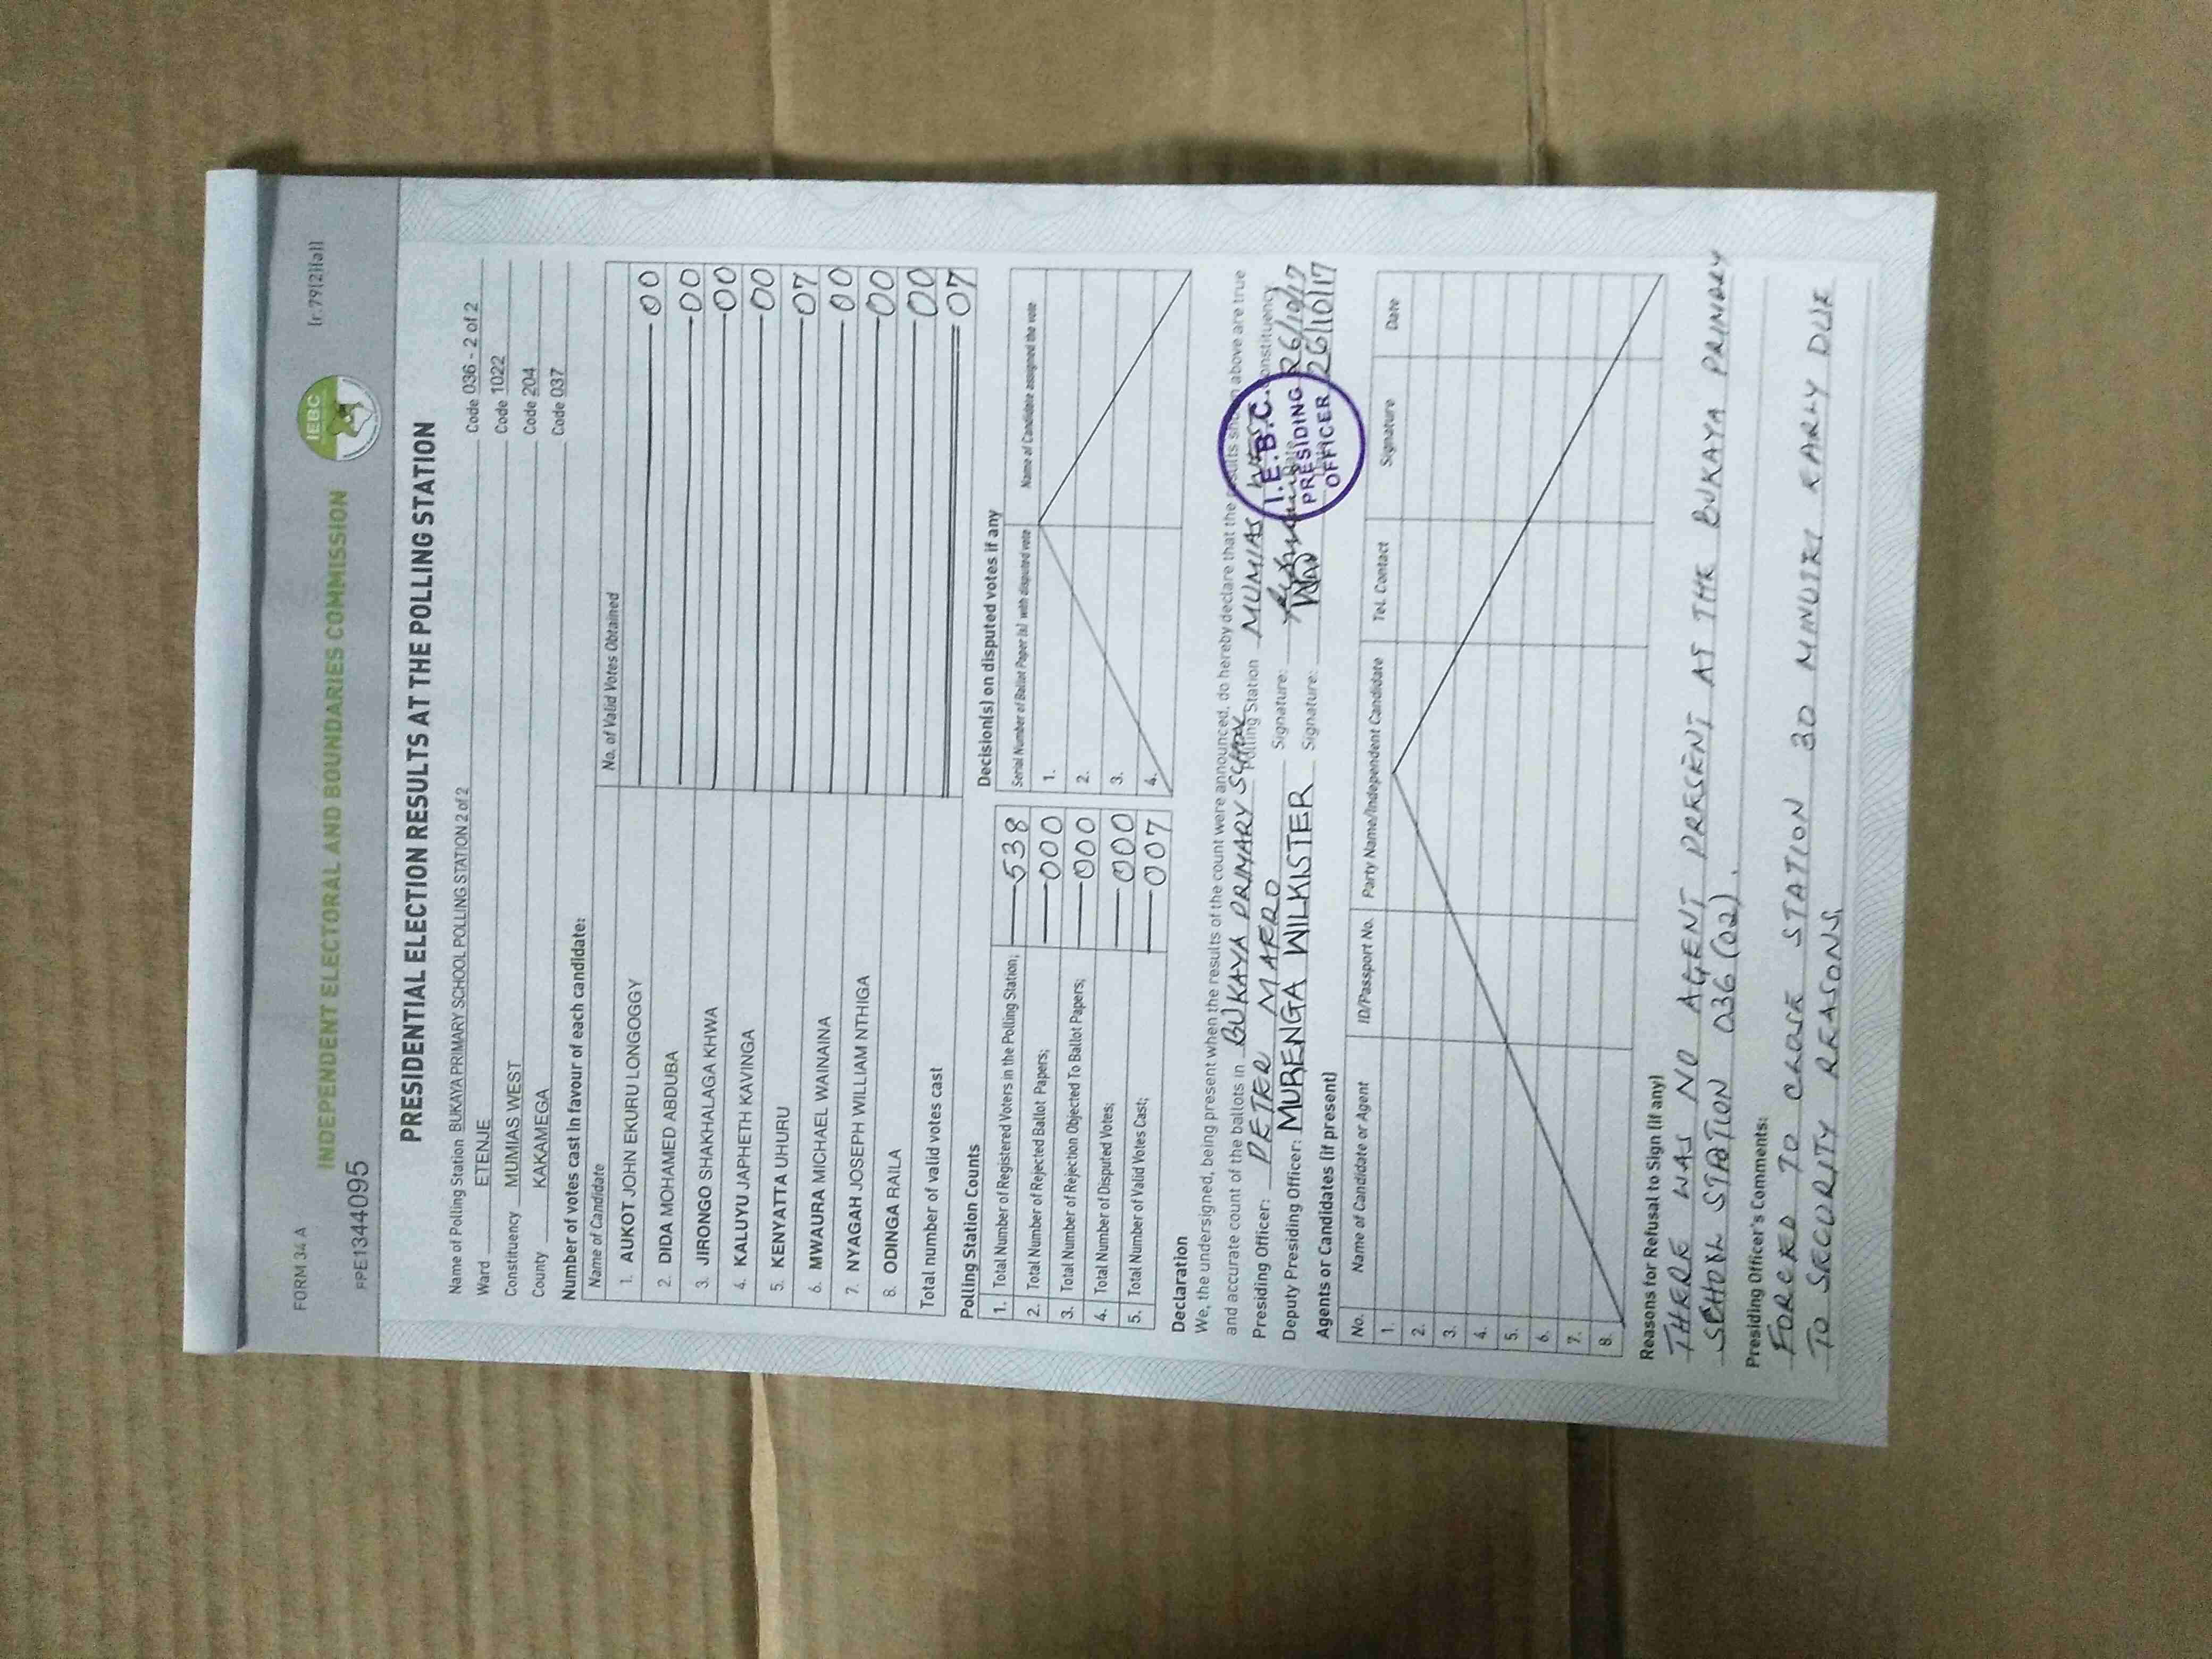 FORM 34 A
[r.79(2)(a)]
INDEPENDENT ELECTORAL AND BOUNDARIES COMMISSION
IEBC
PPE13440095
PRESIDENTIAL ELECTION RESULTS AT THE POLLING STATION
Name of Polling Station BUKAYA PRIMARY SCHOOL POLLING STATION 2 of 2 Code 036 - 2 of 2
Ward ETENJE Code 1022
Constituency MUMIAS WEST Code 204
County KAKAMEGA Code 037
Number of votes cast in favour of each candidate:
Name of Candidate No. of Valid Votes Obtained
1. AUKOT JOHN EKURU LONGOGGY 00
2. DIDA MOHAMED ABDUBA 00
3. JIRONGO SHAKHALAGA KHWA 00
4. KALUYU JAPHETH KAVINGA 00
5. KENYATTA UHURU 07
6. MWAURA MICHAEL WAINAINA 00
7. NYAGAH JOSEPH WILLIAM NTHIGA 00
8. ODINGA RAILA 00
Total number of valid votes cast 07
Polling Station Counts
1. Total Number of Registered Voters in the Polling Station; 538
2. Total Number of Rejected Ballot Papers; 000
3. Total Number of Rejection Objected To Ballot Papers; 000
4. Total Number of Disputed Votes; 000
5. Total Number of Valid Votes Cast; 007
Decision(s) on disputed votes if any
Serial Number of Ballot Paper (s) with disputed vote Name of Candidate assigned the vote
1.
2.
3.
4.
Declaration
We, the undersigned, being present when the results of the count were announced, do hereby declare that the results shown above are true
and accurate count of the ballots in BUKAYA PRIMARY SCHOOL Polling Station MUMIAS WEST Constituency
Presiding Officer: PETER MAERO Signature: 26/10/17
Deputy Presiding Officer: MURENGA WILKISTER Signature: 26/10/17
I.E.B.C.
PRESIDING
OFFICER
Agents or Candidates (if present)
No. Name of Candidate or Agent ID/Passport No. Party Name/Independent Candidate Tel. Contact Signature Date
1.
2.
3.
4.
5.
6.
7.
8.
Reasons for Refusal to Sign (if any)
THERE WAS NO AGENT PRESENT AT THE BUKAYA PRIMARY
SCHOOL STATION 036 (02).
Presiding Officer's Comments:
FORCED TO CLOSE STATION 30 MINUTES EARLY DUE
TO SECURITY REASONS.